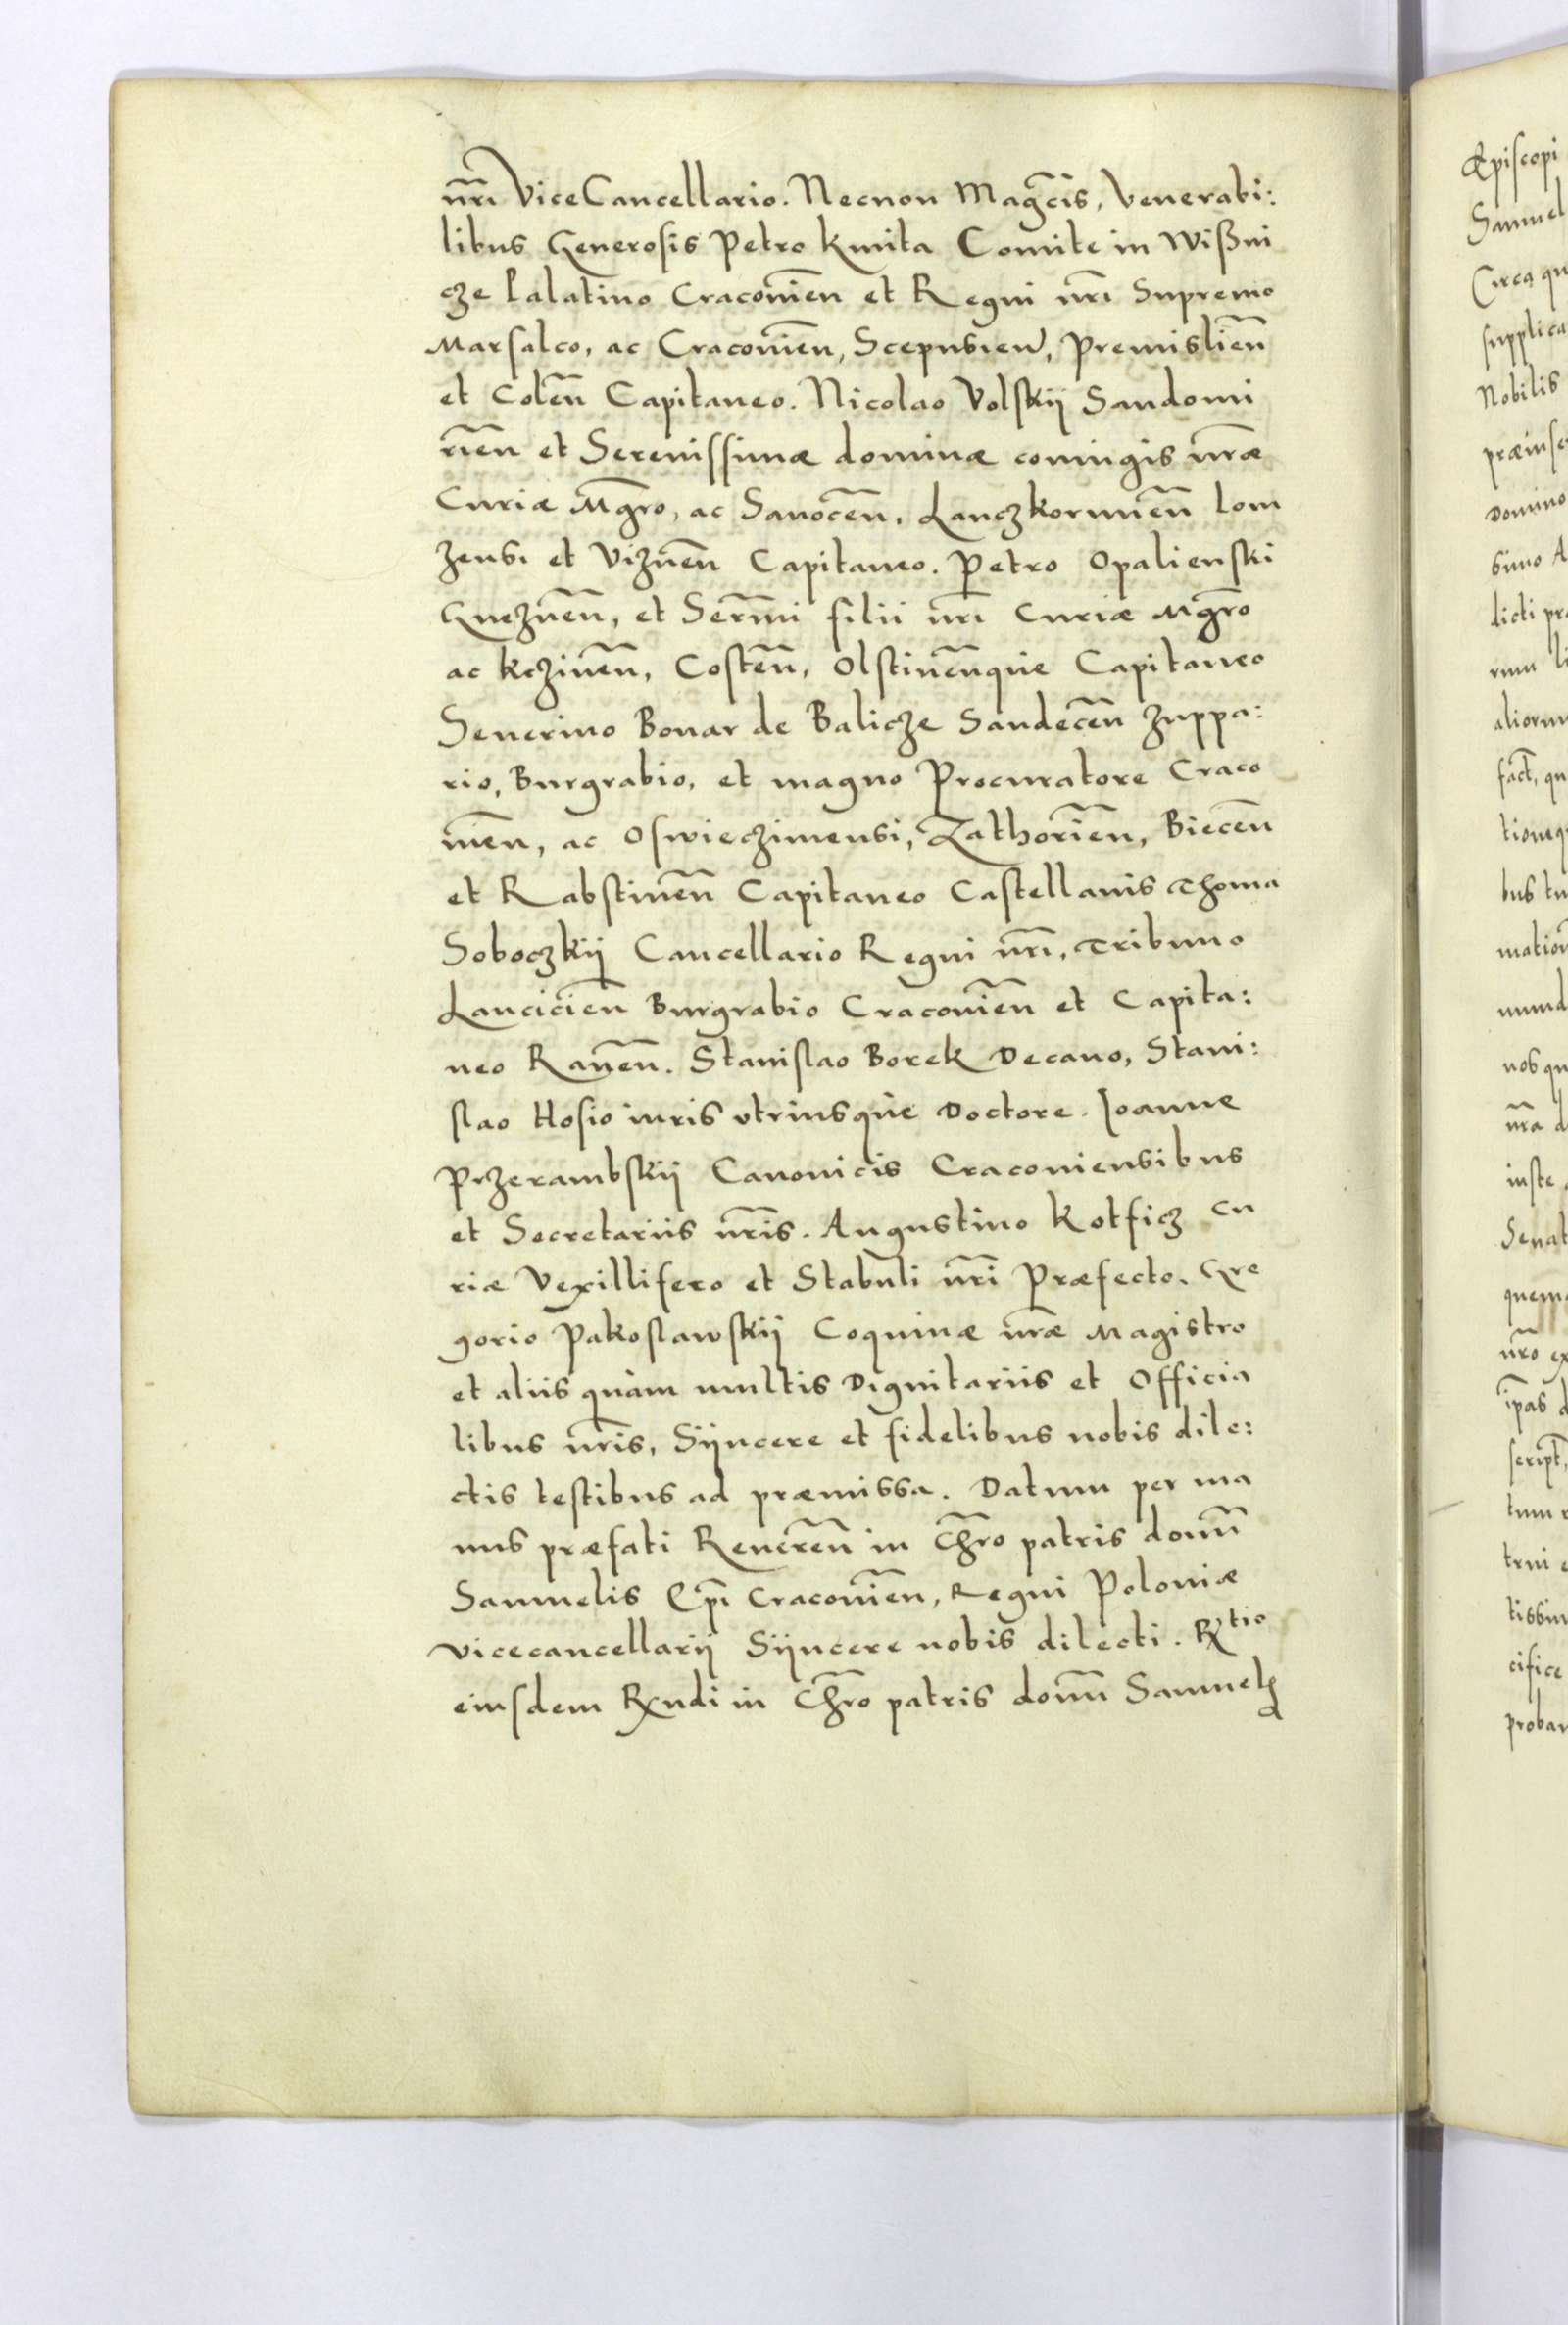 nr̃i Vice Cancellario. Necnon Mag̃cis, Venerabi:
libus Generosis Petro Kmita Comite in Wißni
cze Palatino Cracovień et Regni nr̃i Supremo
Marsalco, ac Cracovień, Scepusień, Premislień
et Coleñ Capitaneo. Nicolao Volskij Sandomi
rień et Serenissimæ dominæ coniugis nr̃æ
Curiæ Mg̃ro, ac Sanoceñ, Lanczkorunеñ Lom
zensi et Vizneñ Capitaneo. Petro Opalienski
Gnezneñ, et Ser̃mi filii nr̃i Curiæ Mg̃ro
ac Kczineñ, Costeñ, Olstineñque Capitaneo
Severino Bonar de Balicze Sandeceñ Zuppa:
rio, Burgrabio, et magno Procuratore Craco
vień, ac Oswieczimensi, Zathorień, Bieceñ
et Rabstineñ Capitaneo Castellanis Thoma
Soboczkij Cancellario Regni nr̃i, Tribuno
Lancicień Burgrabio Cracovień et Capita:
neo Raveñ. Stanislao Borek Decano, Stani:
slao Hosio iuris utriusque Doctore. Joanne
Przerambskij Canonicis Cracoviensibus
et Secretariis nr̃is. Augustino Kotficz Cu
riæ Vexillifero et Stabuli nr̃i Præfecto. Gre
gorio Pakoslawskij Coquinæ nr̃æ Magistro
et aliis quàm multis Dignitariis et Officia
libus nr̃is, Sÿncere et fidelibus nobis dile:
ctis testibus ad præmissa. Datum per ma
nus præfati Reverеñ in Chr̃o patris domñ
Samuelis Ep̃i Cracovień, Regni Poloniæ
Vicecancellarij Sÿncere nobis dilecti. Rtio
eiusdem Rndi in Chr̃o patris domñ Samuelꝭ
Episcopi
Samuel
supplica
Nobilis
Domino
dicti